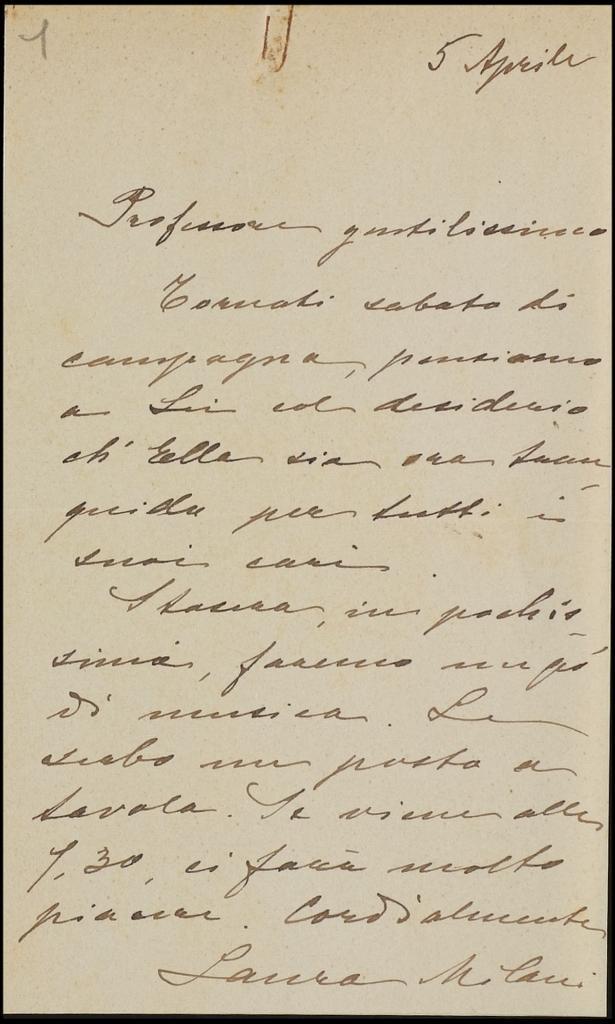 1
5 Aprile
Professore gentilissimo
Tornati sabato di
campagna, pensiamo
a Lei col desiderio
ch' Ella sia ora tran
quilla per tutti i
suoi cari
Stasera, in pochis
simi, faremo un pò
di musica. Le
serbo un posto a
tavola. Se viene alle
7,30, ci farà molto
piacere. Cordialmente
Laura Milani